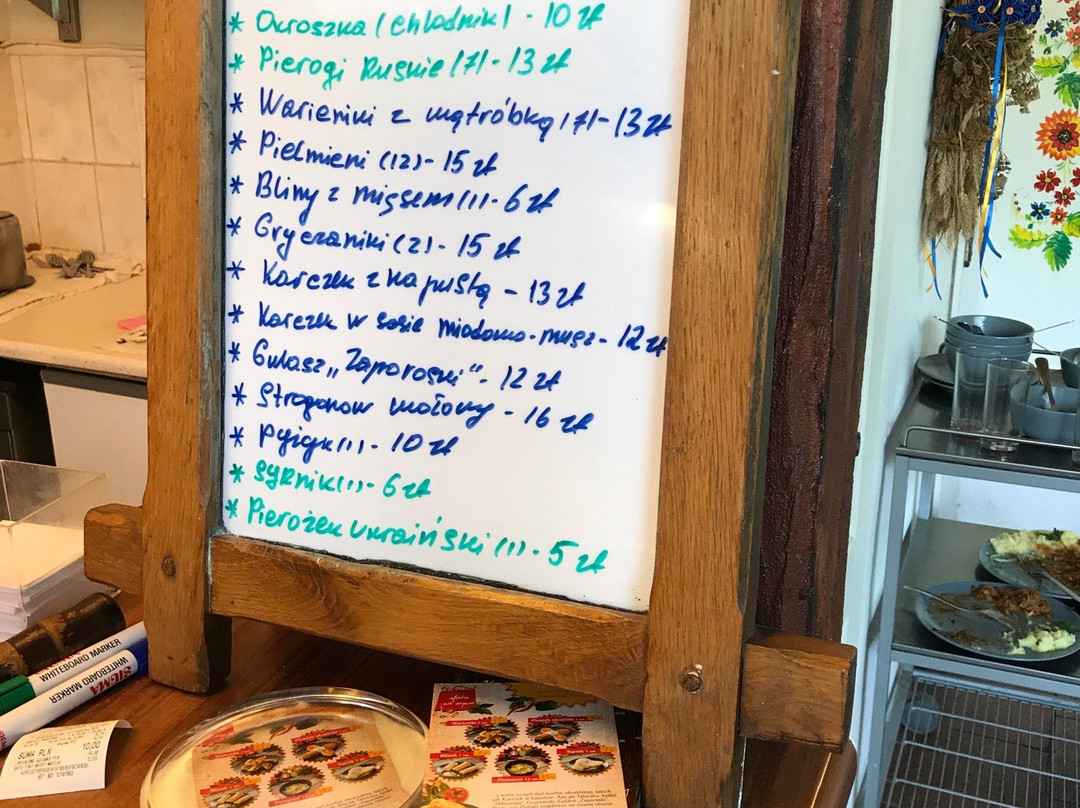 * Okroszka (chłodnik) - 10 zł
* Pierogi Ruskie (7) - 13 zł
* Warieniki z wątróbką (7) - 13 zł
* Pielmieni (12) - 15 zł
* Bliny z mięsem (1) - 6 zł
* Gryczaniki (2) - 15 zł
* Karczek z kapustą - 13 zł
* Karczek w sosie miodowo-musz - 12 zł
* Gulasz "Zaporoski" - 12 zł
* Strogonow wołowy - 16 zł
* Pyizy (1) - 10 zł
* Syrnik (1) - 6 zł
* Pierożek ukraiński (1) - 5 zł
WHITEBOARD MARKER
WHITEBOARD MARKER SIGMA
SUMA PLN 10,00